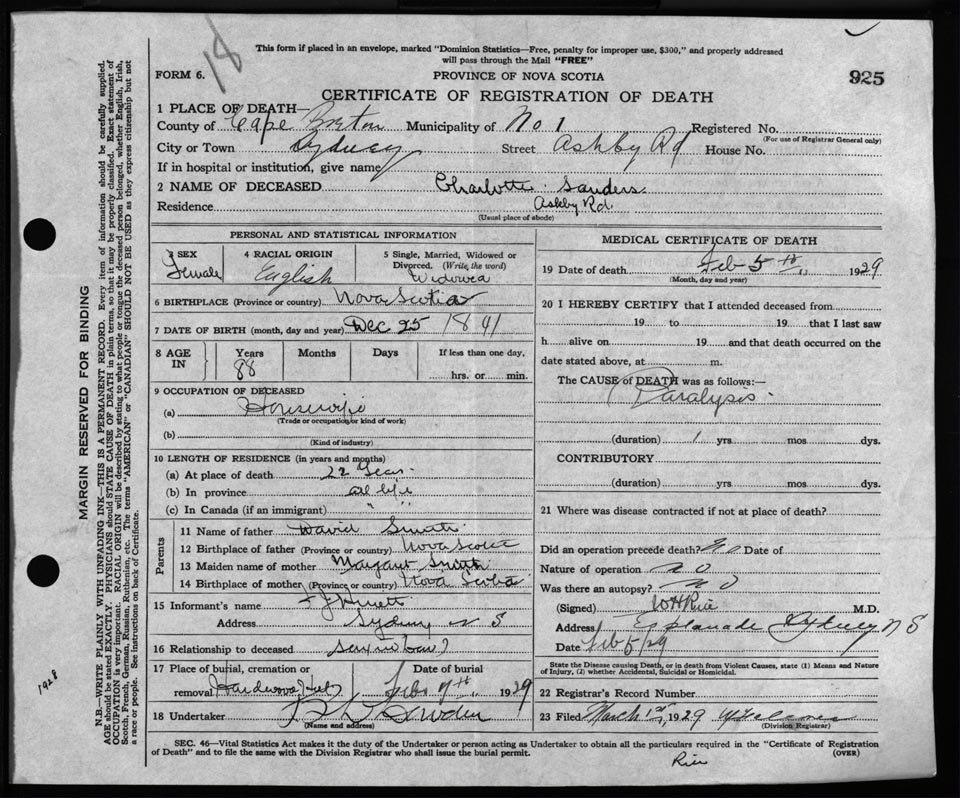 18
This form if placed in an envelope, marked "Dominion Statistics—Free, penalty for improper use, $300," and properly addressed
will pass through the Mail "FREE"
FORM 6.
PROVINCE OF NOVA SCOTIA
925
CERTIFICATE OF REGISTRATION OF DEATH
1 PLACE OF DEATH—
County of Cape Breton Municipality of No 1 Registered No.
(For use of Registrar General only)
City or Town Sydney Street Ashby Rd House No.
If in hospital or institution, give name
2 NAME OF DECEASED Charlotte Sanders
Residence Ashby Rd.
(Usual place of abode)
PERSONAL AND STATISTICAL INFORMATION
3 SEX Female
4 RACIAL ORIGIN English
5 Single, Married, Widowed or
Divorced. (Write the word)
Widowed
6 BIRTHPLACE (Province or country) Nova Scotia
7 DATE OF BIRTH (month, day and year) Dec 25 1841
8 AGE IN Years 88 Months Days If less than one day,
hrs. or min.
9 OCCUPATION OF DECEASED
(a) Housewife
(Trade or occupation or kind of work)
(b)
(Kind of industry)
10 LENGTH OF RESIDENCE (in years and months)
(a) At place of death 22 Years
(b) In province all life
(c) In Canada (if an immigrant) " "
Parents
11 Name of father David Smith
12 Birthplace of father (Province or country) Nova Scotia
13 Maiden name of mother Margaret Smith
14 Birthplace of mother (Province or country) Nova Scotia
15 Informant's name
Address Sydney N S
16 Relationship to deceased Son in law
17 Place of burial, cremation or
removal Hardwood Hill
Date of burial
Feb 7th 1929
18 Undertaker
(Name and address)
MEDICAL CERTIFICATE OF DEATH
19 Date of death Feb 5th 1929
(Month, day and year)
20 I HEREBY CERTIFY that I attended deceased from
19 to 19 that I last saw
h alive on 19 and that death occurred on the
date stated above, at m.
The CAUSE of DEATH was as follows:—
Paralysis
(duration) 1 yrs mos dys.
CONTRIBUTORY
(duration) yrs mos dys.
21 Where was disease contracted if not at place of death?
Did an operation precede death? No Date of
Nature of operation no
Was there an autopsy? no
(Signed) W H Rice M.D.
Address Esplanade Sydney N S
Date Feb 5/29
State the Disease causing Death, or in death from Violent Causes, state (1) Means and Nature
of Injury, (2) whether Accidental, Suicidal or Homicidal.
22 Registrar's Record Number
23 Filed March 1st, 1929
(Division Registrar)
SEC. 46—Vital Statistics Act makes it the duty of the Undertaker or person acting as Undertaker to obtain all the particulars required in the "Certificate of Registration
of Death" and to file the same with the Division Registrar who shall issue the burial permit.
(OVER)
Rice
MARGIN RESERVED FOR BINDING
N.B.—WRITE PLAINLY WITH UNFADING INK—THIS IS A PERMANENT RECORD. Every item of information should be carefully supplied.
AGE should be stated EXACTLY. PHYSICIANS should STATE CAUSE OF DEATH in plain terms, so that it may be properly classified. Exact statement of
OCCUPATION is very important. RACIAL ORIGIN will be described by stating to what people or tongue the deceased person belonged, whether English, Irish,
Scotch, French, German, Russian, Ruthenian, etc. The terms "AMERICAN" or "CANADIAN" SHOULD NOT BE USED as they express citizenship but not
a race or people. See instructions on back of Certificate.
1928